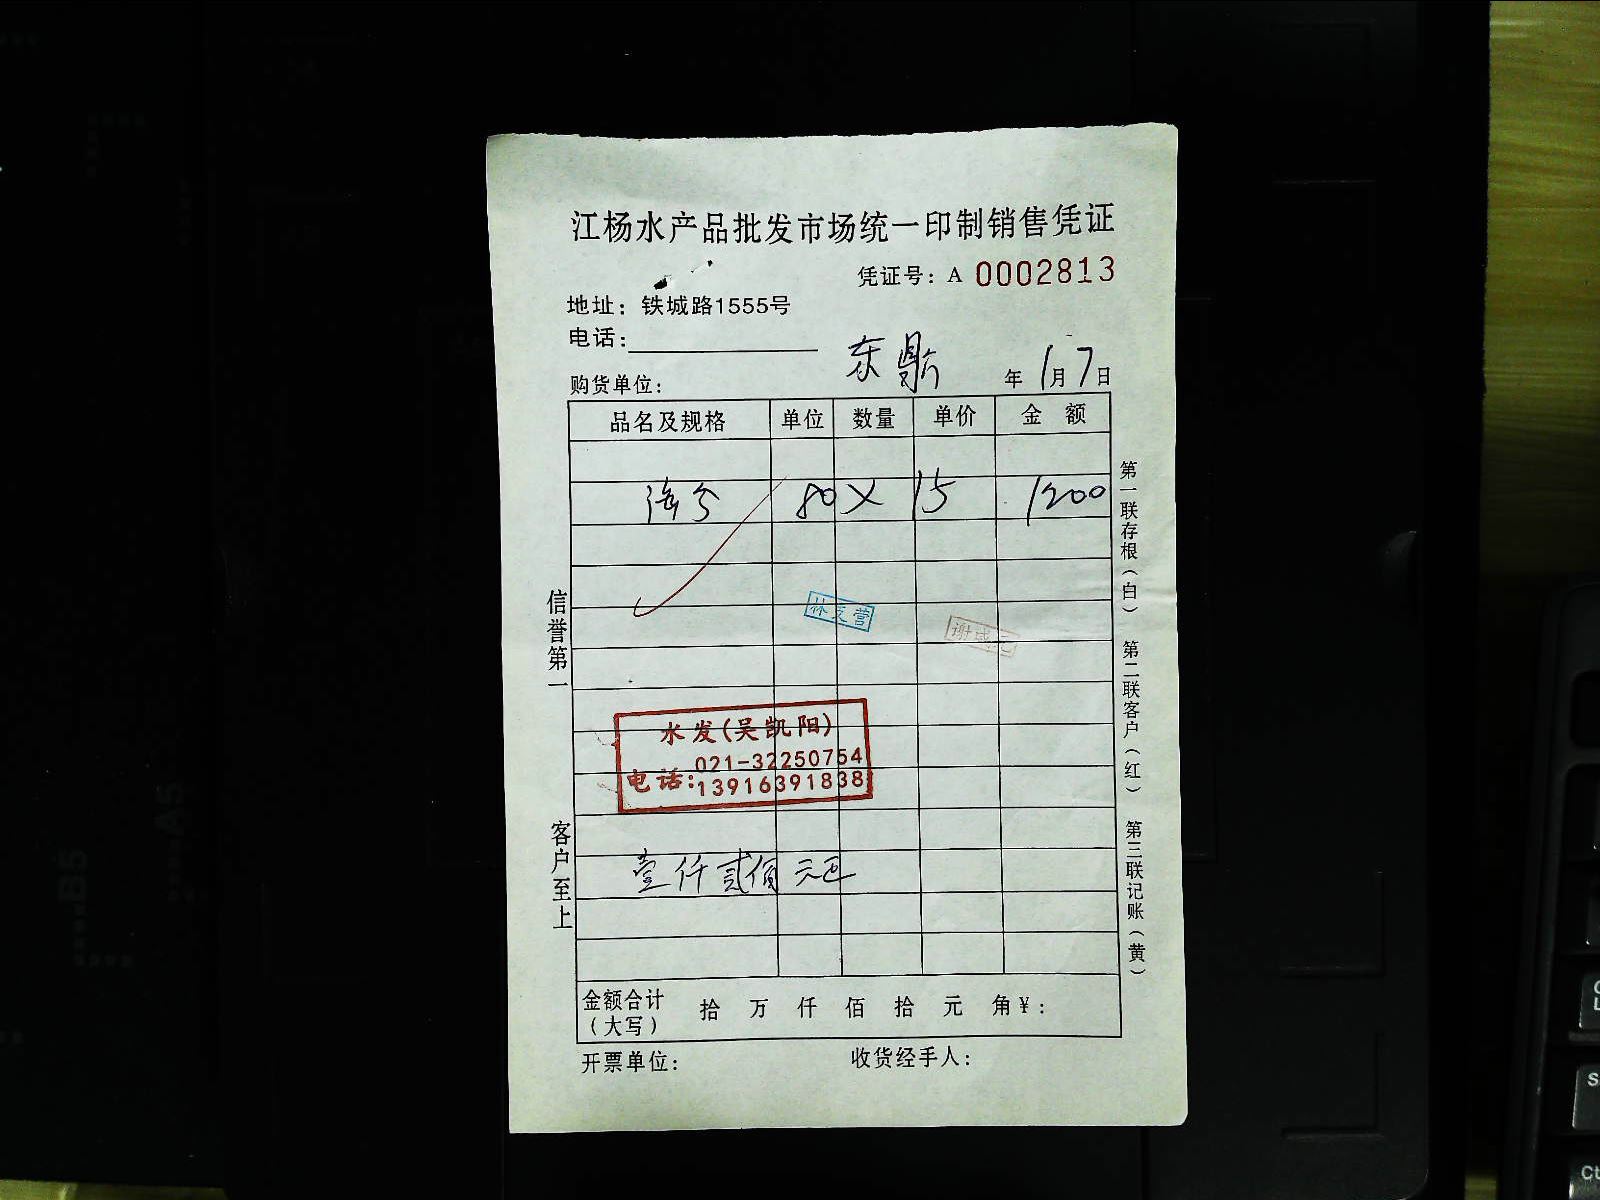 江杨水产品批发市场统一印制销售凭证
凭证号：A 0002813
地址：铁城路1555号
电话：
购货单位： 东 年 1月7日
品名及规格 单位 数量 单价 金额
海 80 × 15 1200
林 营
谢盛
水发(吴凯阳)
电话：021-32250754
13916391838
壹仟贰佰元
金额合计（大写） 拾 万 仟 佰 拾 元 角￥：
开票单位： 收货经手人：
信誉第一
客户至上
第一联存根（白）
第二联客户（红）
第三联记账（黄）
A5
B5